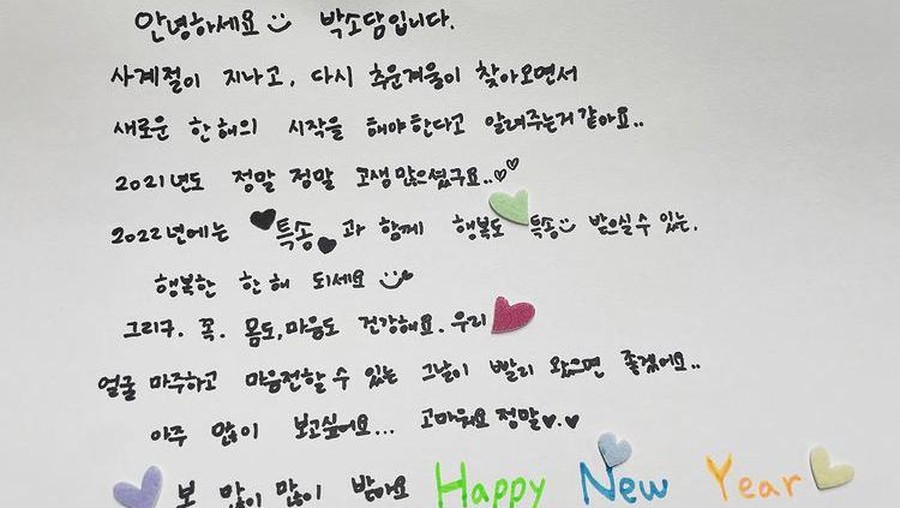 안녕하세요 박소담입니다.
사계절이 지나고, 다시 추운겨울이 찾아오면서
새로운 한 해의 시작을 해야한다고 알려주는거 같아요..
2021년도 정말 정말 고생많으셨구요..
2022년에는 특송 과 함께 행복도 특송 받으실 수 있는,
행복한 한 해 되세요
그리구. 꼭. 몸도, 마음도 건강해요. 우리
얼굴 마주하고 마음전할 수 있는 그날이 빨리 왔으면 좋겠어요..
아주 많이 보고싶어요... 고마워요 정말♥.♥
복 많이 많이 받아요 Happy New Year